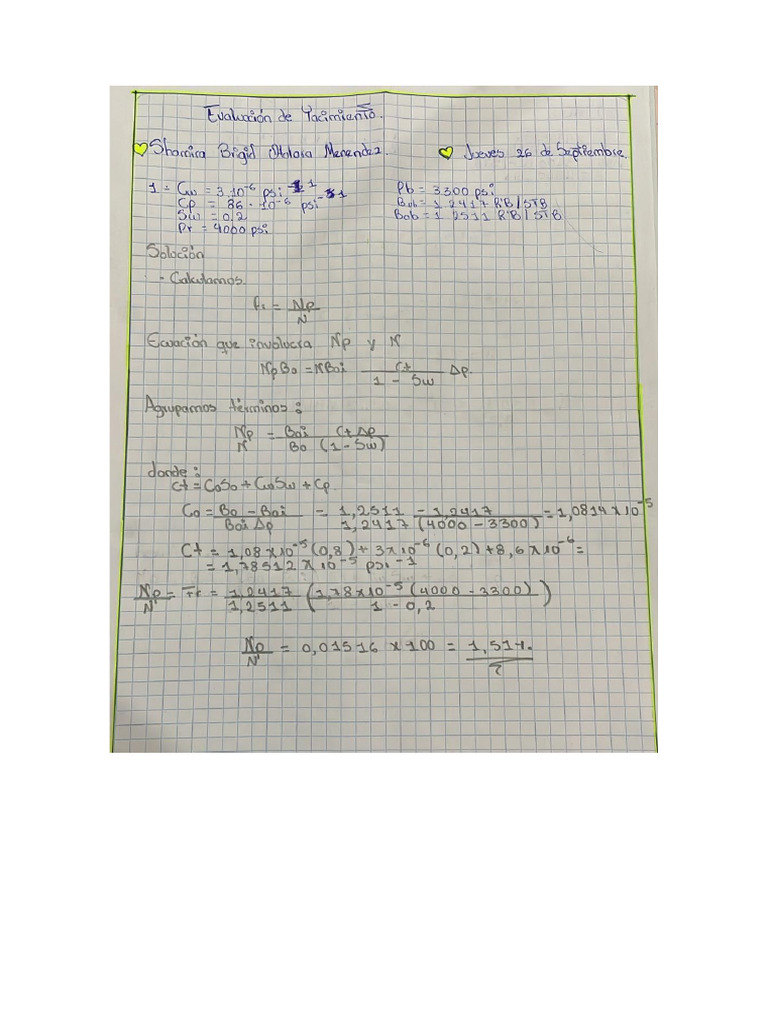 Evaluación de Yacimiento.
Shamira Brigid Menendez. Jueves 26 de Septiembre.
1 = Cw = 3.10⁻⁶ psi⁻¹ Pb = 3300 psi
Cp = 86 · 10⁻⁶ psi⁻¹ Boi = 1 2417 RB/STB
Sw = 0,2 Bob = 1 2511 RB/STB
Pr = 4000 psi
Solución
- Calculamos.
fr = Np/N
Ecuación que involucra Np y N
NpBo = NBoi Ct/(1 - Sw) Δp.
Agrupamos términos:
Np/N = Boi/Bo CtΔp/(1 - Sw)
donde:
Ct = CoSo + CwSw + Cp.
Co = (Bo - Boi)/(Boi Δp) = (1,2511 - 1,2417)/(1,2417 (4000 - 3300)) = 1,0814 x 10⁻⁵
Ct = 1,08 x 10⁻⁵ (0,8) + 3 x 10⁻⁶ (0,2) + 8,6 x 10⁻⁶ =
= 1,78512 x 10⁻⁵ psi⁻¹
Np/N = Fr = 1,2417/1,2511 (1,78 x 10⁻⁵ (4000 - 3300)/(1 - 0,2))
Np/N = 0,01516 x 100 = 1,51%.